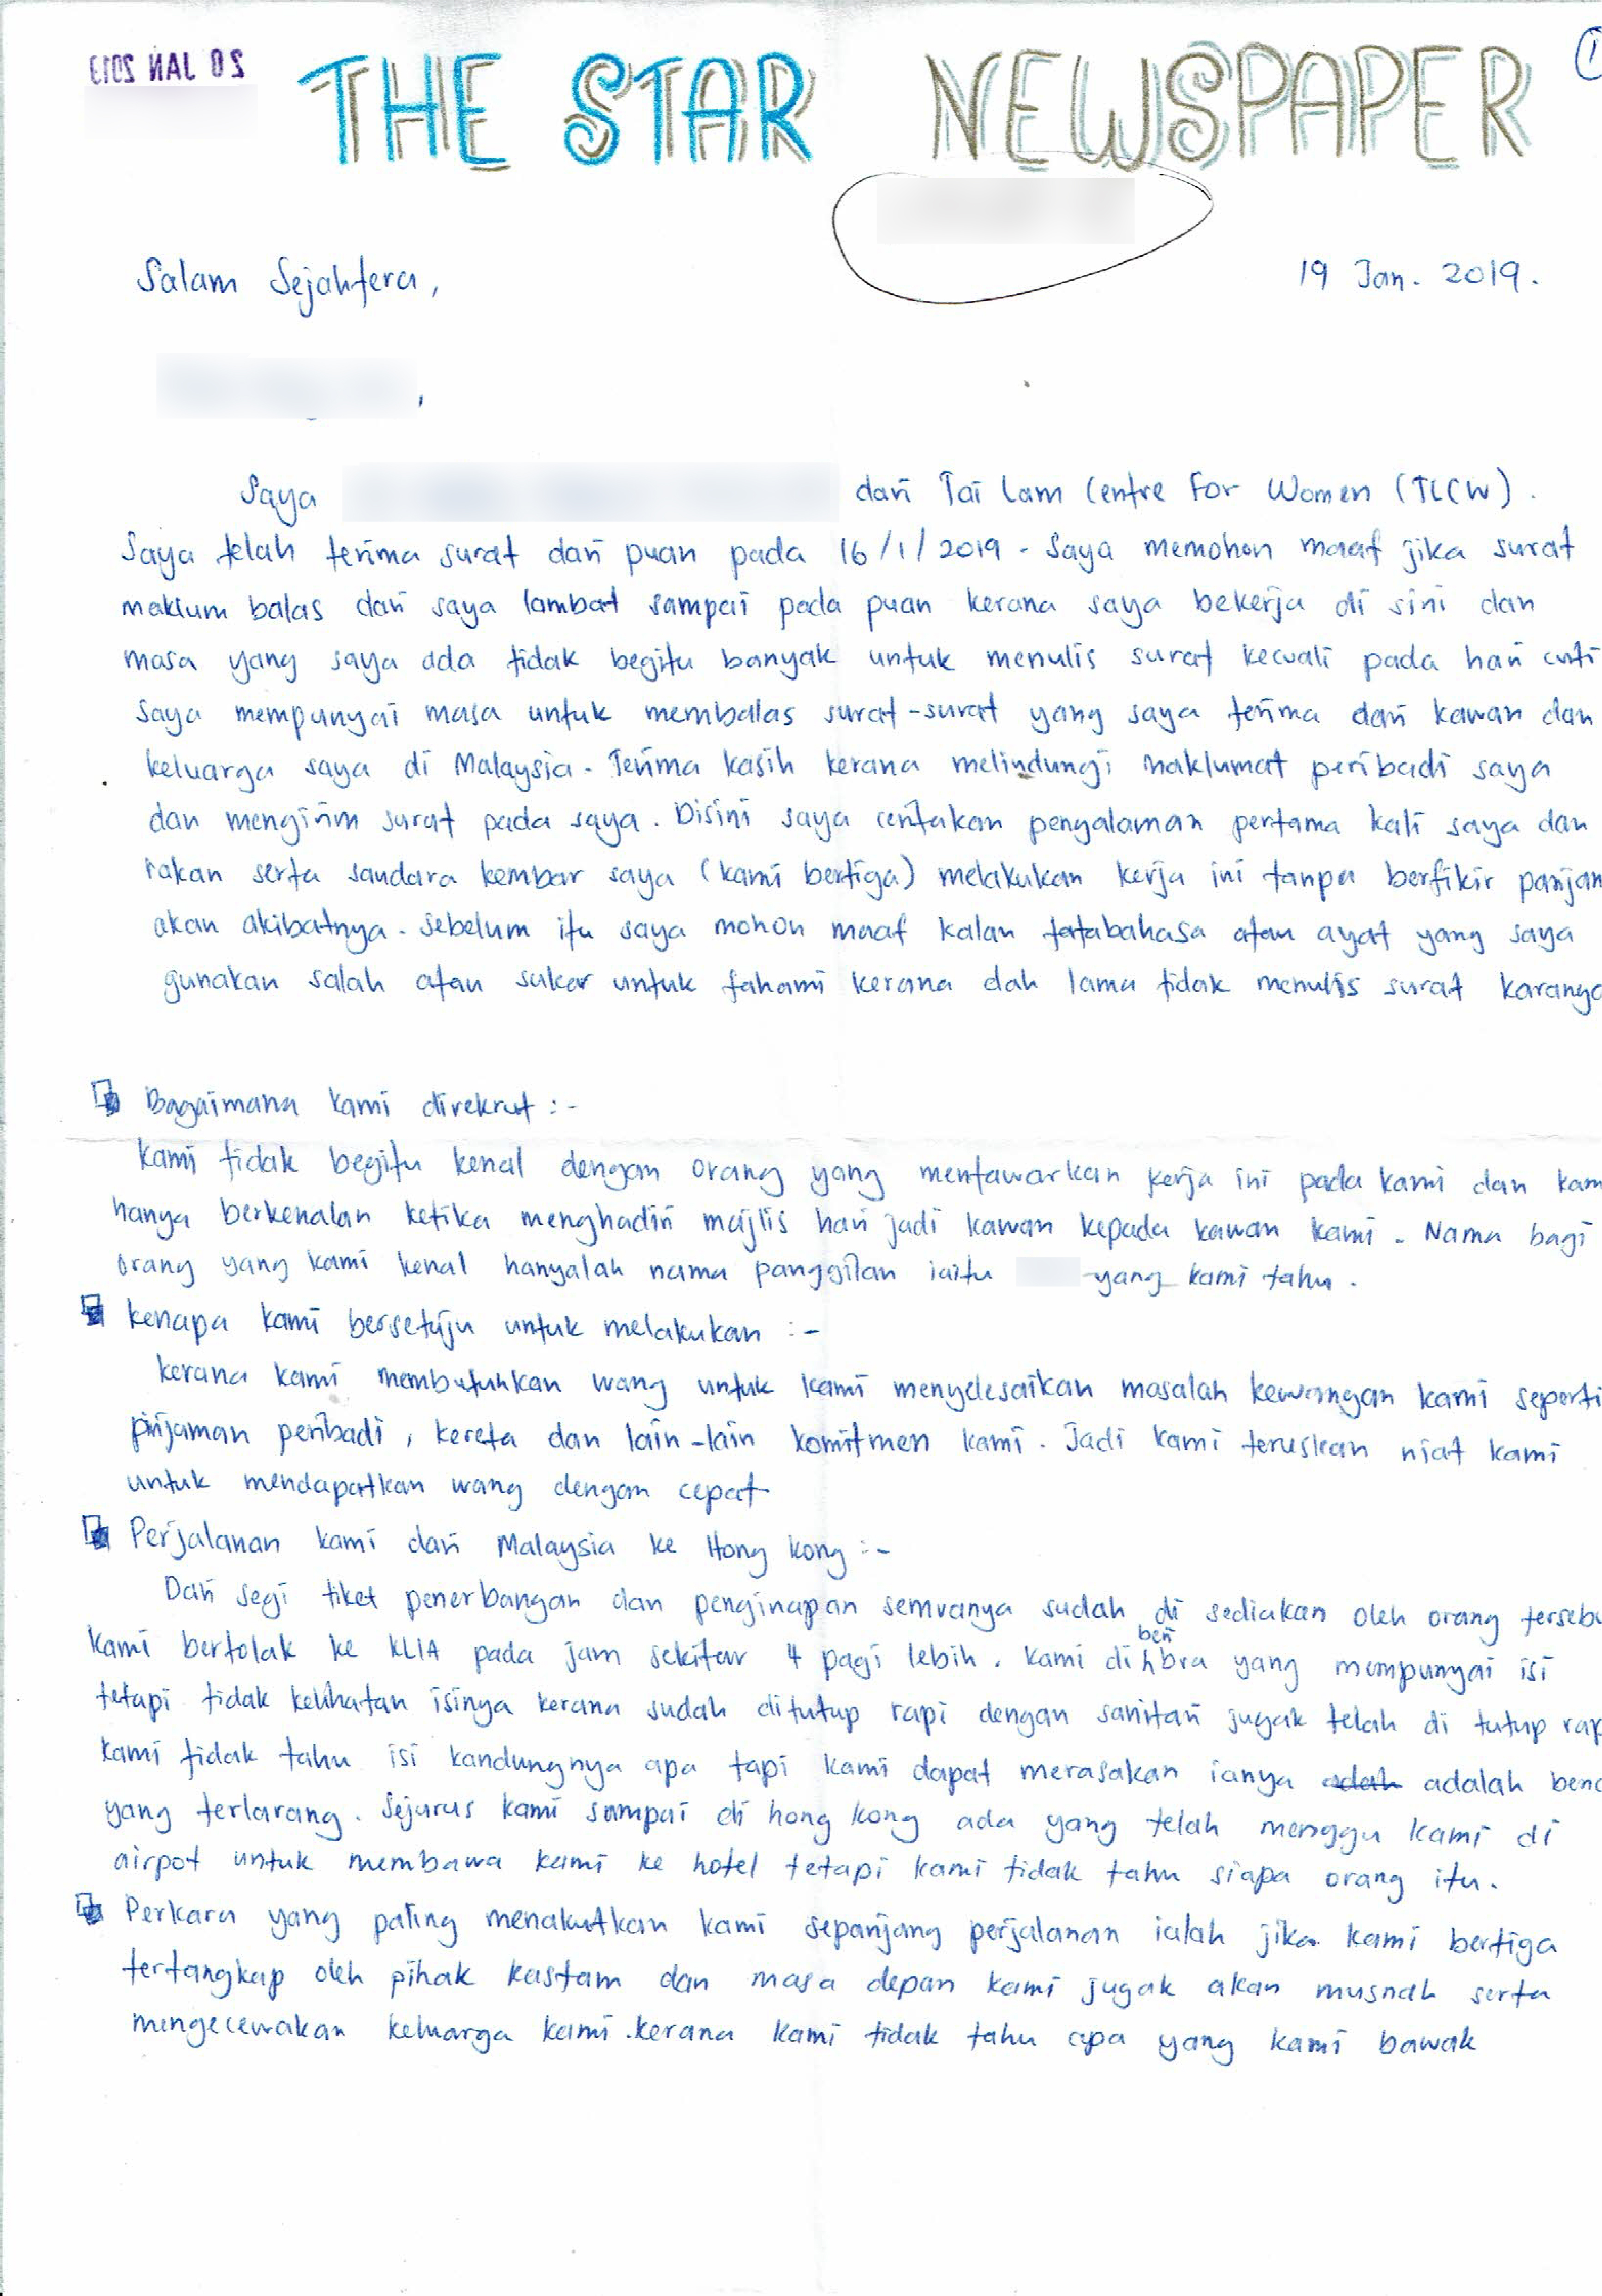 20 JAN 2019
THE STAR NEWSPAPER
1
Salam Sejahtera,
19 Jan. 2019.
,
Saya dari Tai Lam Centre For Women (TLCW).
Saya telah terima surat dari puan pada 16/1/2019 - Saya memohon maaf jika surat
maklum balas dari saya lambat sampai pada puan kerana saya bekerja di sini dan
masa yang saya ada tidak begitu banyak untuk menulis surat kecuali pada hari cuti
saya mempunyai masa untuk membalas surat-surat yang saya terima dari kawan dan
keluarga saya di Malaysia. Terima kasih kerana melindungi maklumat peribadi saya
dan mengirim surat pada saya. Disini saya ceritakan pengalaman pertama kali saya dan
rakan serta saudara kembar saya (kami bertiga) melakukan kerja ini tanpa berfikir panjan
akan akibatnya. Sebelum itu saya mohon maaf kalau tatabahasa atau ayat yang saya
gunakan salah atau sukar untuk fahami kerana dah lama tidak menulis surat karanga
Bagaimana kami direkrut :-
Kami tidak begitu kenal dengan orang yang mentawarkan kerja ini pada kami dan kam
hanya berkenalan ketika menghadiri majlis hari jadi kawan kepada kawan kami. Nama bagi
orang yang kami kenal hanyalah nama panggilan iaitu yang kami tahu.
Kenapa kami bersetuju untuk melakukan :-
Kerana kami membutuhkan wang untuk kami menyelesaikan masalah kewangan kami seperti
pinjaman peribadi, kereta dan lain-lain komitmen kami. Jadi kami teruskan niat kami
untuk mendapatkan wang dengan cepat
Perjalanan kami dari Malaysia ke Hong Kong :-
Dari segi tiket penerbangan dan penginapan semuanya sudah di sediakan oleh orang tersebu
Kami bertolak ke KLIA pada jam sekitar 4 pagi lebih. Kami diberi bra yang mempunyai isi
tetapi tidak kelihatan isinya kerana sudah ditutup rapi dengan sanitari jugak telah di tutup rap
Kami tidak tahu isi kandungnya apa tapi kami dapat merasakan ianya adalah bend
yang terlarang. Sejurus kami sampai di hong kong ada yang telah menggu kami di
airpot untuk membawa kami ke hotel tetapi kami tidak tahu siapa orang itu.
Perkara yang paling menakutkan kami sepanjang perjalanan ialah jika kami bertiga
tertangkap oleh pihak kastam dan masa depan kami jugak akan musnah serta
mengecewakan keluarga kami. kerana kami tidak tahu apa yang kami bawak